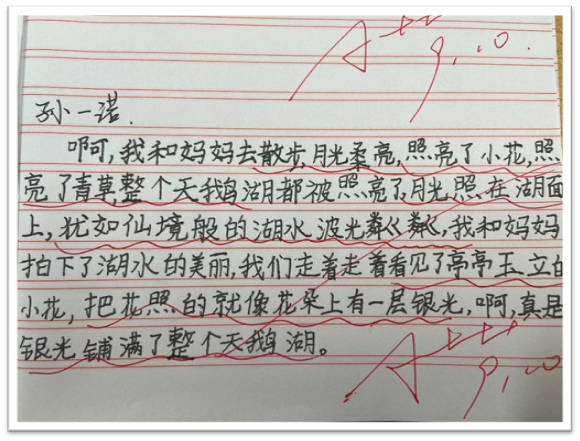 A+++
9.10.
孙一诺.
啊,我和妈妈去散步,月光柔亮,照亮了小花,照
亮了青草,整个天鹅湖都被照亮了,月光照在湖面
上,犹如仙境般的湖水波光粼粼,我和妈妈
拍下了湖水的美丽,我们走着走着看见了亭亭玉立的
小花,把花照的就像花朵上有一层银光,啊,真是
银光铺满了整个天鹅湖。
A+++